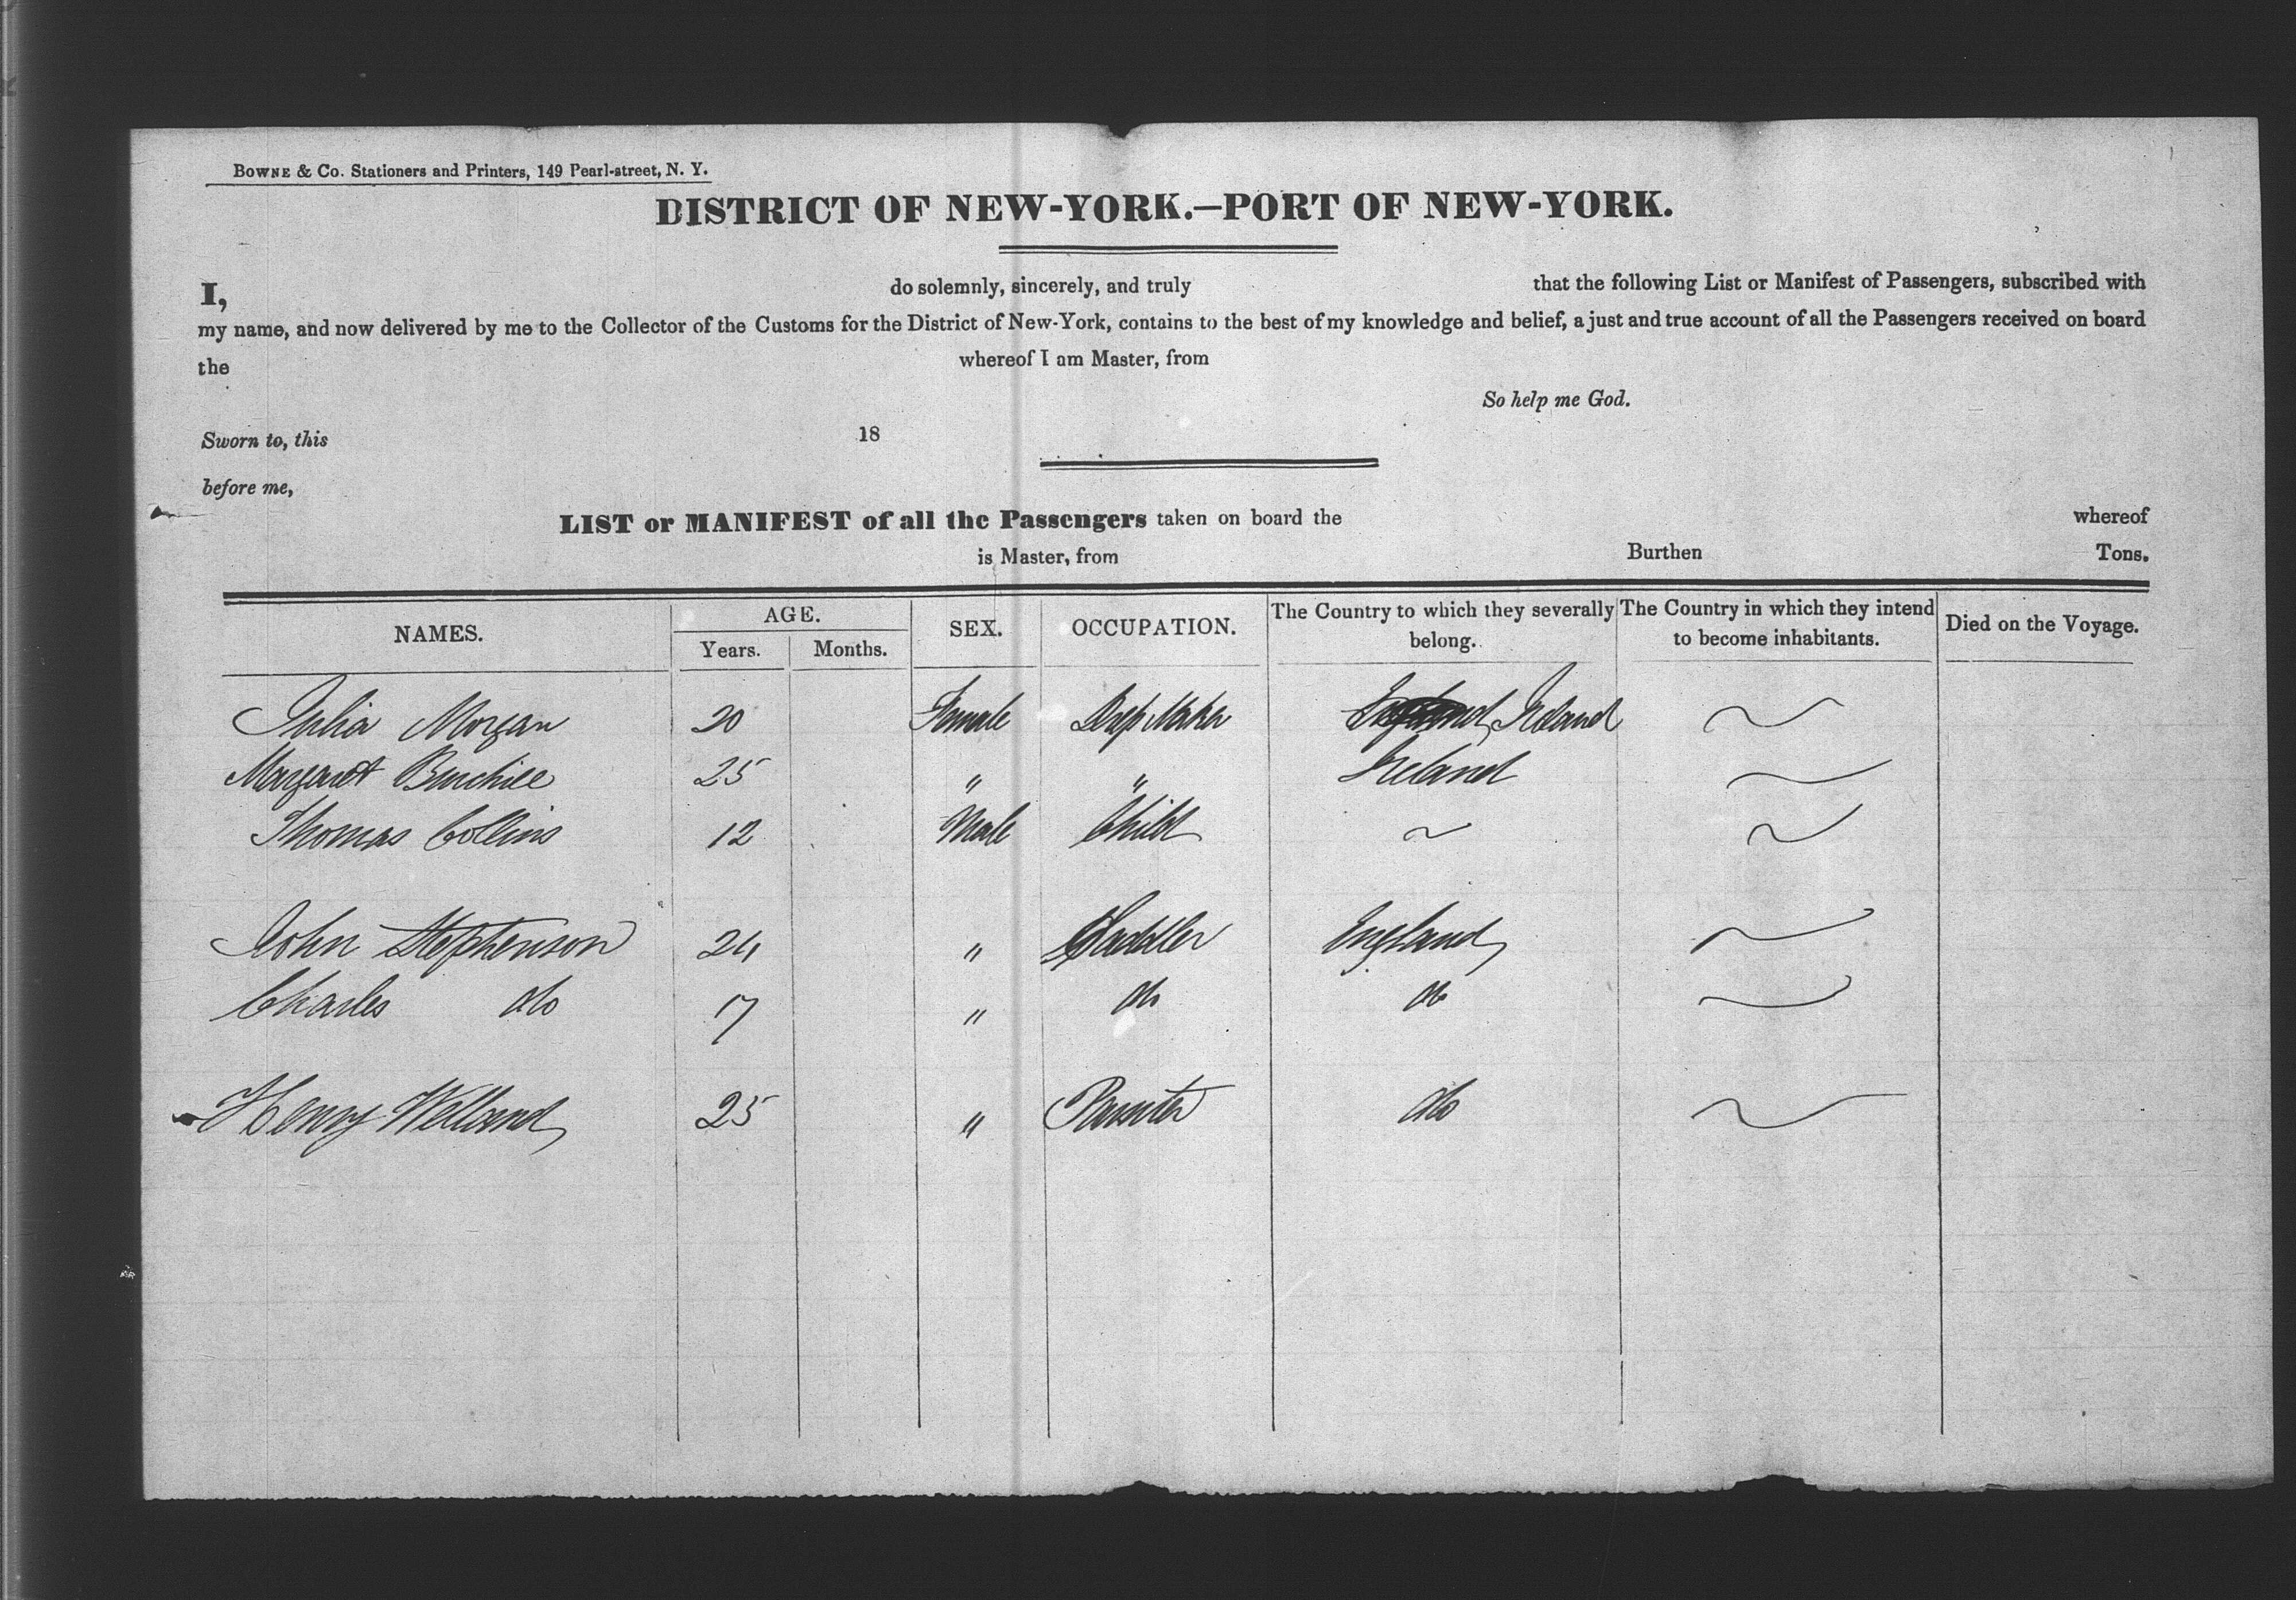 BOWNE & Co. Stationers and Printers, 149 Pearl-street, N. Y.
DISTRICT OF NEW-YORK.—PORT OF NEW-YORK.
I, do solemnly, sincerely, and truly that the following List or Manifest of Passengers, subscribed with
my name, and now delivered by me to the Collector of the Customs for the District of New-York, contains to the best of my knowledge and belief, a just and true account of all the Passengers received on board
the whereof I am Master, from
So help me God.
Sworn to, this 18
before me,
LIST or MANIFEST of all the Passengers taken on board the whereof
is Master, from Burthen Tons.
NAMES. AGE. Years. Months. SEX. OCCUPATION. The Country to which they severally belong. The Country in which they intend to become inhabitants. Died on the Voyage.
Julia Morgan 20 Female Dress Maker Ireland ~
Margaret Burchill 25 " " Ireland ~
Thomas Collins 12 Male Child ~ ~
John Stephenson 24 " Saddler England ~
Charles do 17 " do do ~
Henry Welland 25 " Painter do ~